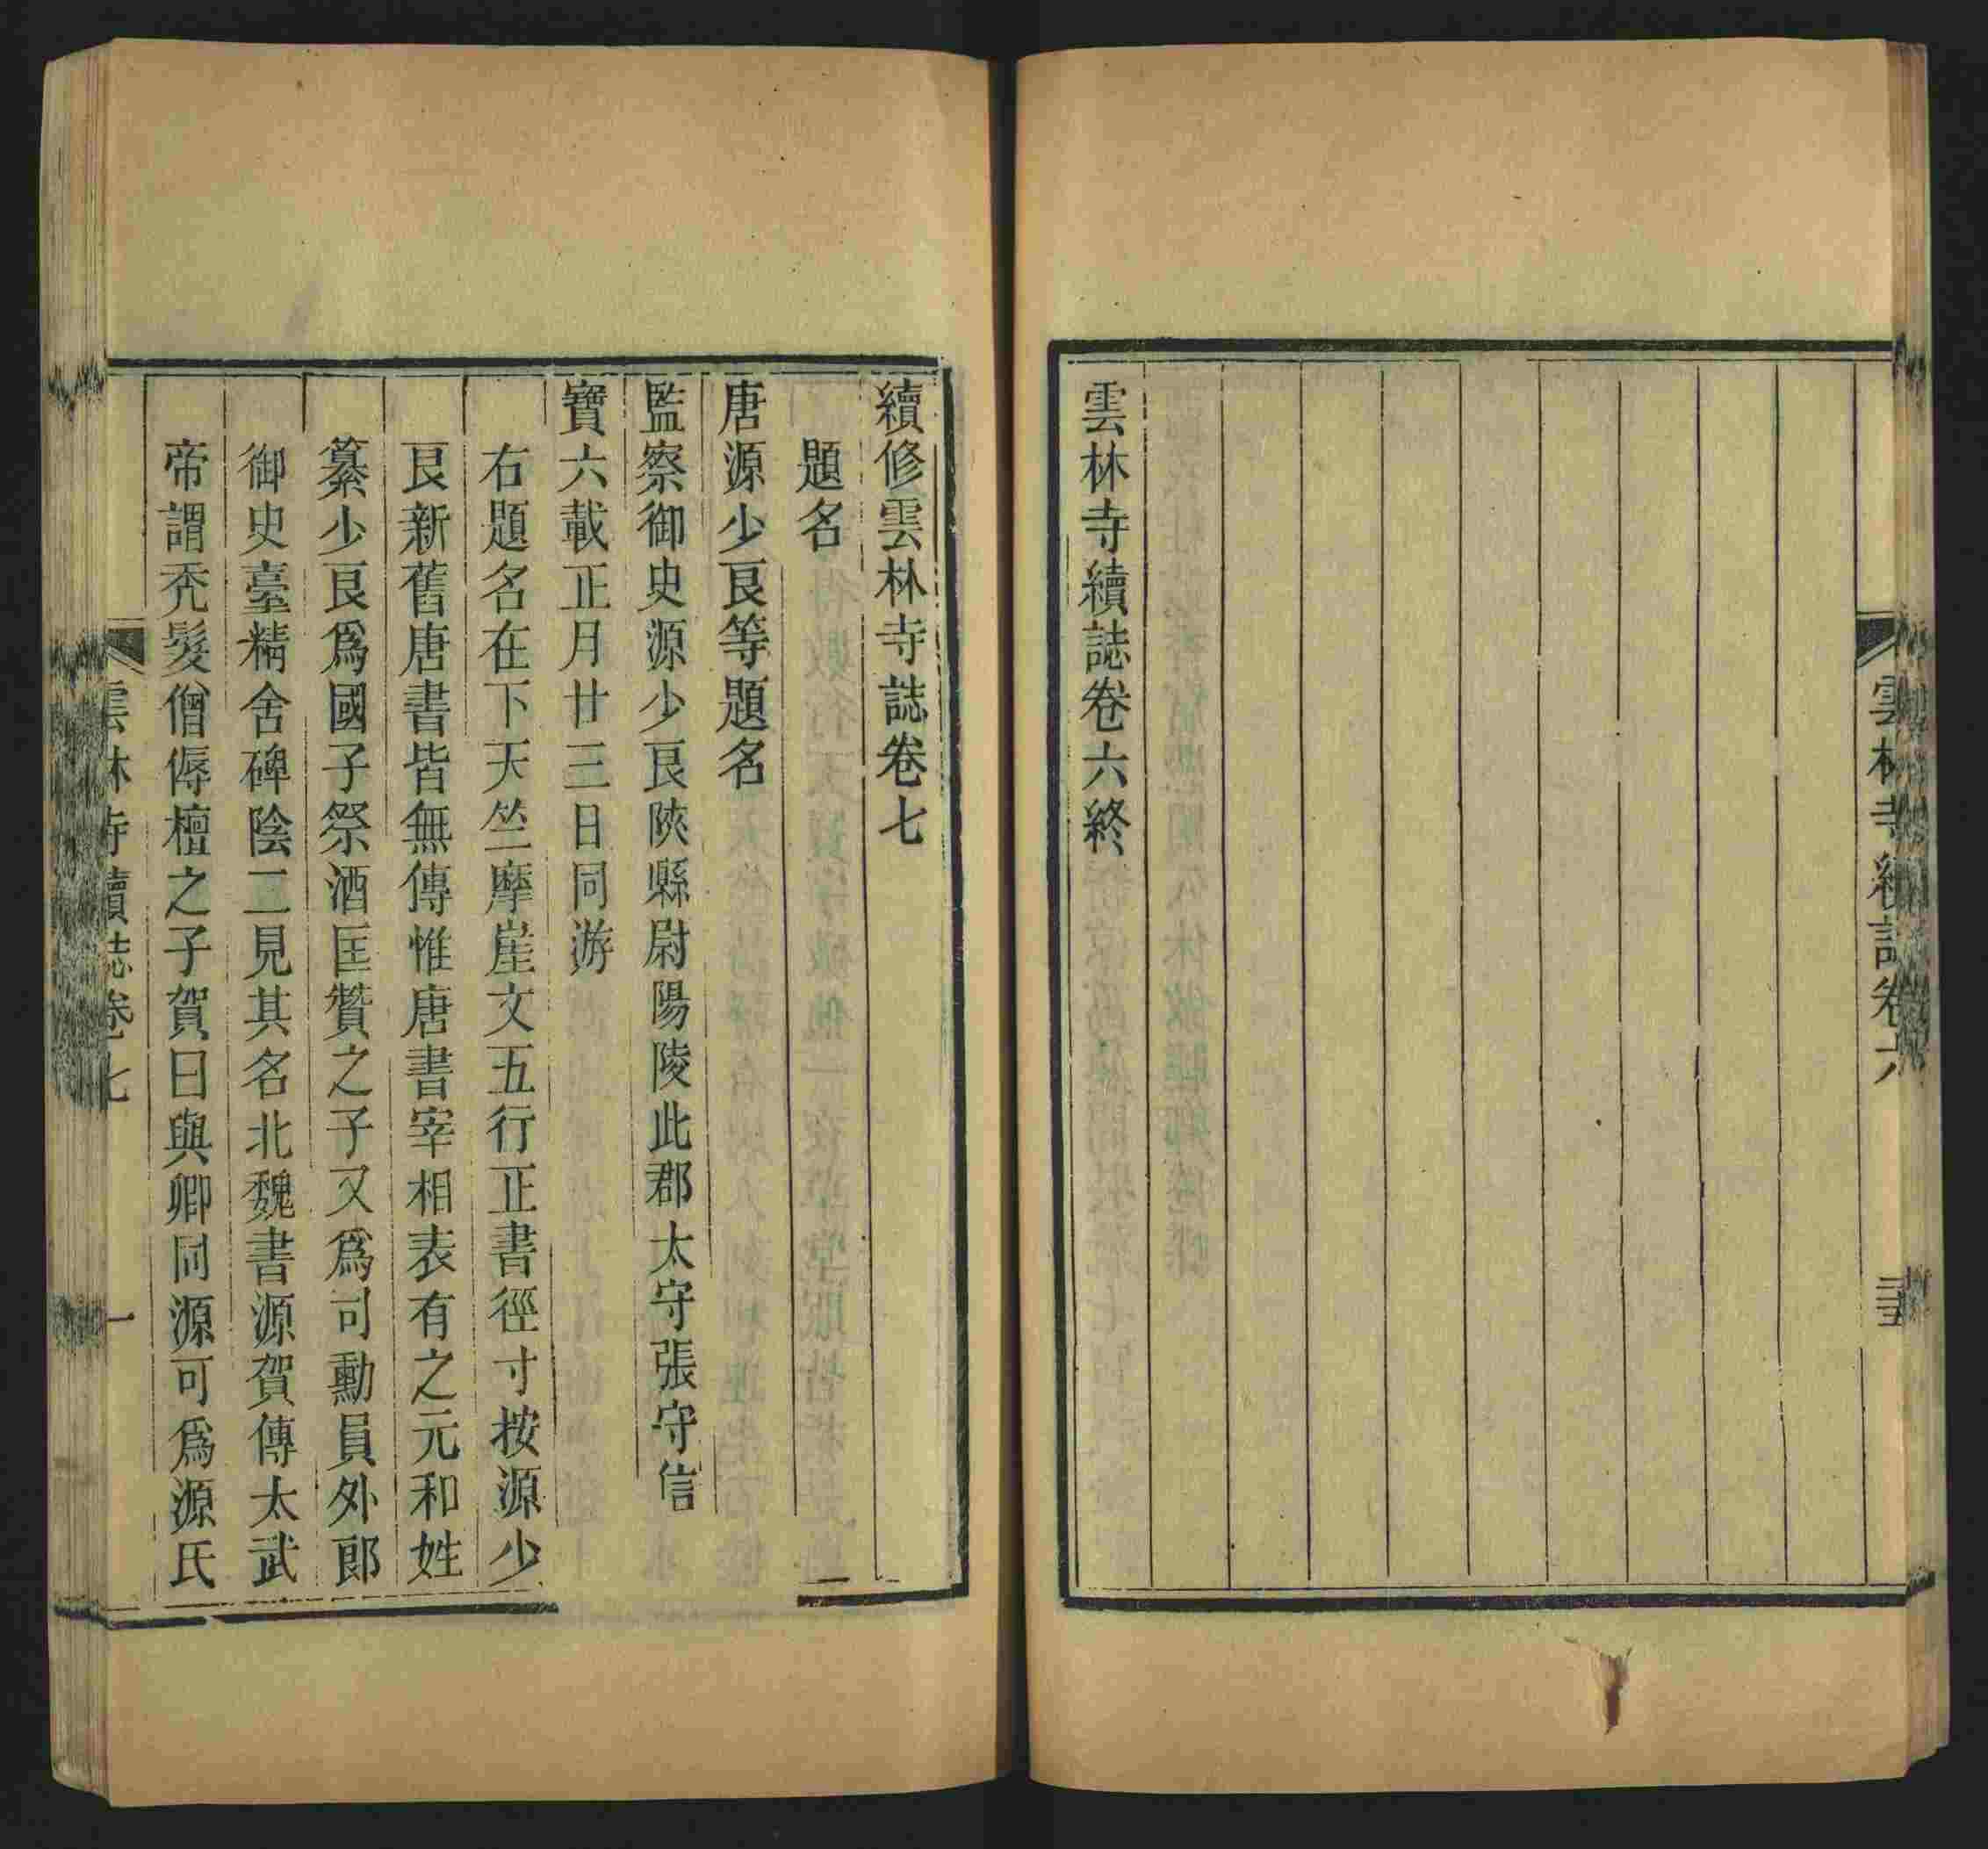 雲林寺續誌卷六
雲林寺續誌卷六終
續修雲林寺誌卷七
題名
唐源少良等題名
監察御史源少良陝縣尉陽陵此郡太守張守信
寶六載正月廿三日同游
右題名在下天竺摩崖文五行正書徑寸按源少
良新舊唐書皆無傳惟唐書宰相表有之元和姓
纂少良爲國子祭酒匡贊之子又爲司勳員外郎
御史臺精舍碑陰二見其名北魏書源賀傳太武
帝謂禿髮僧傉檀之子賀曰與卿同源可爲源氏
雲林寺續誌卷七
一